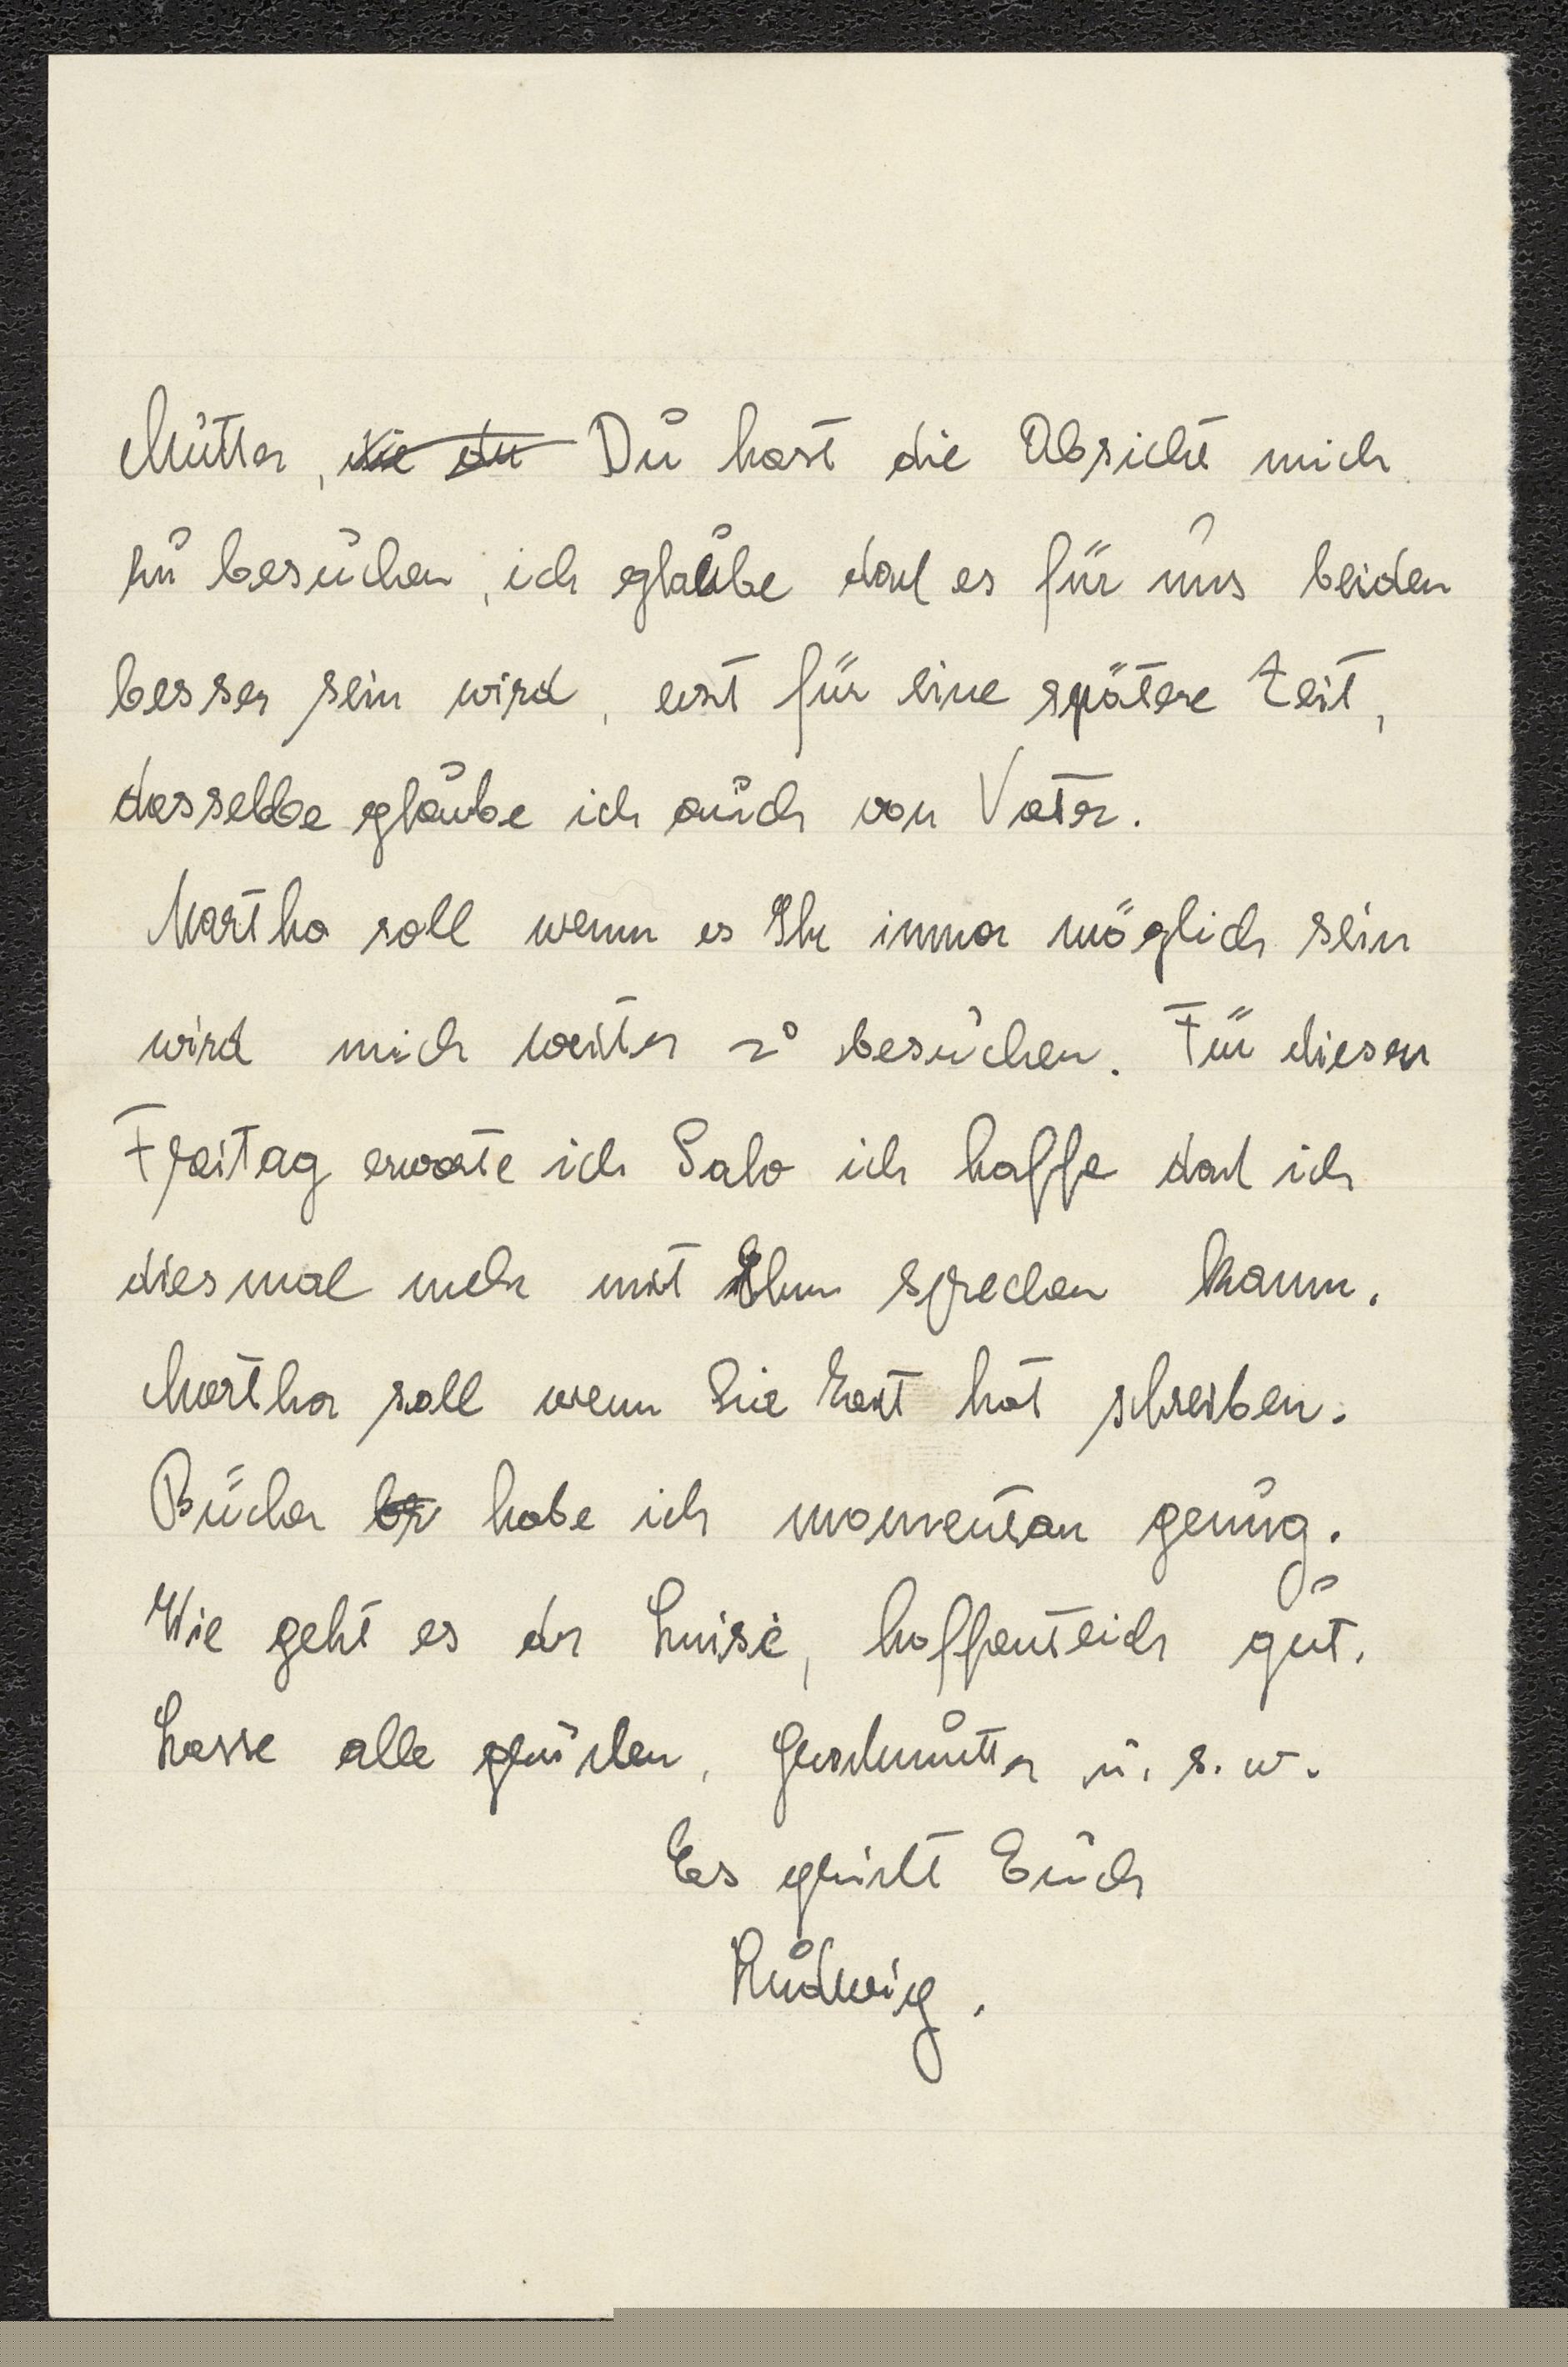 Mutter, die du Du hast die Absicht mich
zu besuchen, ich glaube daß es für uns beiden
besser sein wird, erst für eine spätere Zeit,
dasselbe glaube ich auch von Vater.
Martha soll wenn es Ihr immer möglich sein
wird mich weiter zu besuchen. Für diesen
Freitag erwarte ich Salo ich hoffe daß ich
diesmal mehr mit Ihm sprechen kann.
Martha soll wenn Sie Zeit hat schreiben.
Bücher habe ich momentan genug.
Wie geht es der Luise, hoffenteich gut.
Lasse alle grüßen, Großmutter u. s. w.
Es grüßt Euch
Ludwig.